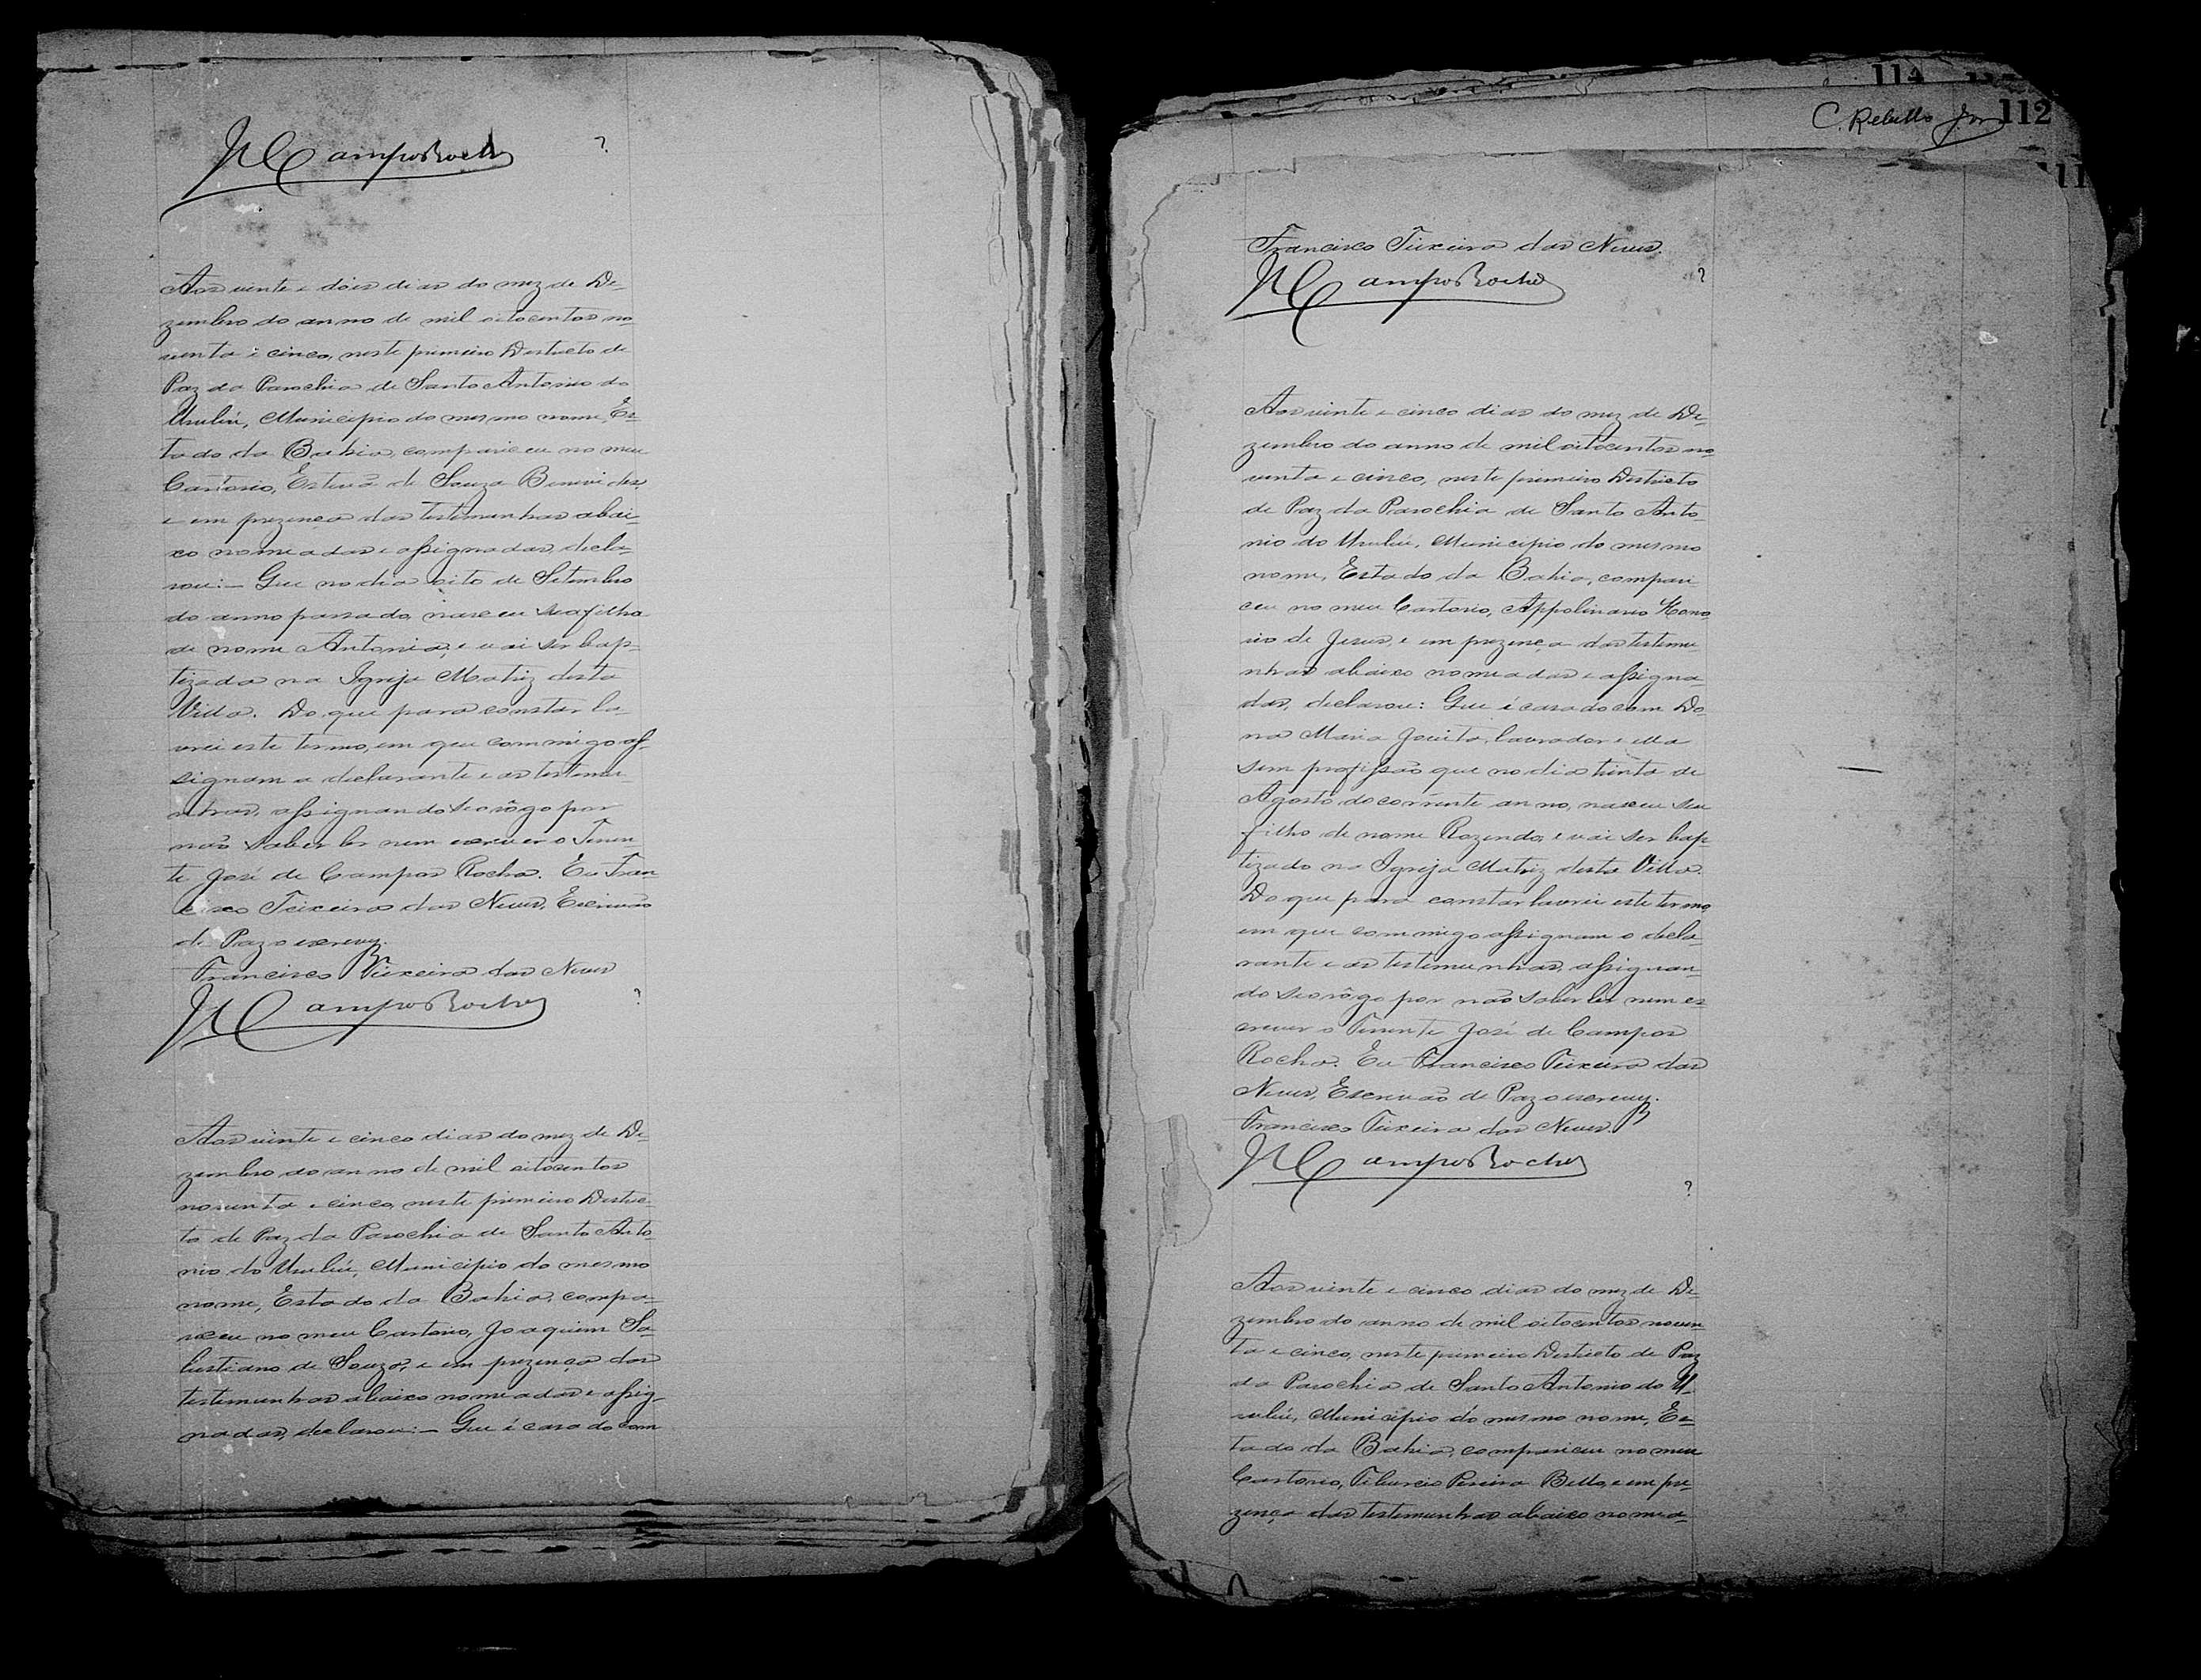 JCamposRocha
?
Aos vinte e dois dias do mez de De-
zembro do anno de mil oitocentos no-
venta e cinco, neste primeiro Destricto de
Paz da Parochia de Santo Antonio do
Urubú, Municipio do mesmo nome, Es-
tado da Bahia, compareceu no meu
Cartorio, Estevã de Souza Benevides,
e em prezença das testemunhas abai-
xo nomeadas e assignadas, decla-
rou:- Que no dia oito de Setembro
do anno passado, nasceu sua filha
de nome Antonia, e vai ser bap-
tizada na Igreja Matriz desta
Villa. Do que para constar la-
vrei este termo, em que commigo as-
signam a declarante e as testemu-
nhas, assignando seo rôgo por
não saber ler nem escrever o Tenen-
te José de Campos Rocha. Eu Fran
cisco Teixeira das Neves, Escrivão
de Paz o escrevy.
Francisco Teixeira das Neves
JCamposRocha
?
Aos vinte e cinco dias do mez de De-
zembro do anno de mil oitocentos
noventa e cinco, neste primeiro Destric-
to de Paz da Parochia de Santo Anto
nio do Urubú, Municipio do mesmo
nome, Estado da Bahia, compa-
receu no meu Cartorio, Joaquim Sa-
lustiano de Souza, e em prezença das
testemunhas abaixo nomeadas e assig-
nadas, declarou:- Que é casado com
114
C. Rebello Jor
112
11
Francisco Teixeira das Neves.
JCamposRocha
?
Aos vinte e cinco dias do mez de De-
zembro do anno de mil oitocentos no-
venta e cinco, neste primeiro Destricto
de Paz da Parochia de Santo Anto-
nio do Urubú, Municipio do mesmo
nome, Estado da Bahia, compare
ceu no meu Cartorio, Appolinario Hono
rio de Jesus, e em prezença das testemu
nhas abaixo nomeadas e assigna
das, declarou: Que é casado com Do-
na Maria Jovita, lavrador e ella
sem profissão que no dia trinta de
Agosto do corrente anno, nasceu seu
filho de nome Rozendo, e vai ser bap-
tizado na Igreja Matriz desta Villa.
Do que para constar lavrei este termo,
em que commigo assignam o decla-
rante e as testemunhas, assignan-
do seo rôgo por não saber ler nem es
crever o Tenente José de Campos
Rocha. Eu Francisco Teixeira das
Neves, Escrivão de Paz o escrevy.
Francisco Teixeira das Neves.
JCamposRocha
?
Aos vinte e cinco dias do mez de De
zembro do anno de mil oitocentos noven
ta e cinco, neste primeiro Destricto de Paz
da Parochia de Santo Antonio do U-
rubú, Municipio do mesmo nome, Es-
tado da Bahia, compareceu no meu
Cartorio, Tiburcio Pereira Bello, e em pre-
zença das testemunhas abaixo nomea-